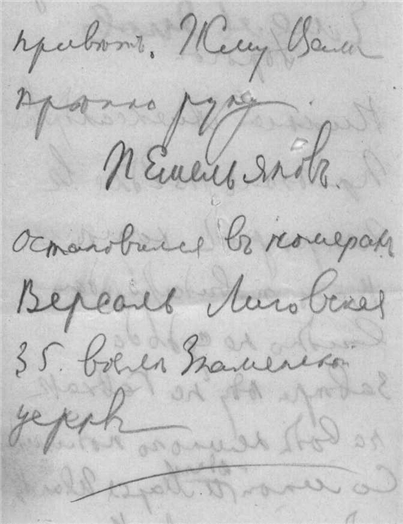 приветъ. Жму Вамъ
крепко руку
ПЕмельяновъ.
остановился въ номерахъ
Версаль Лиговская
35. возле Знаменской
церкви